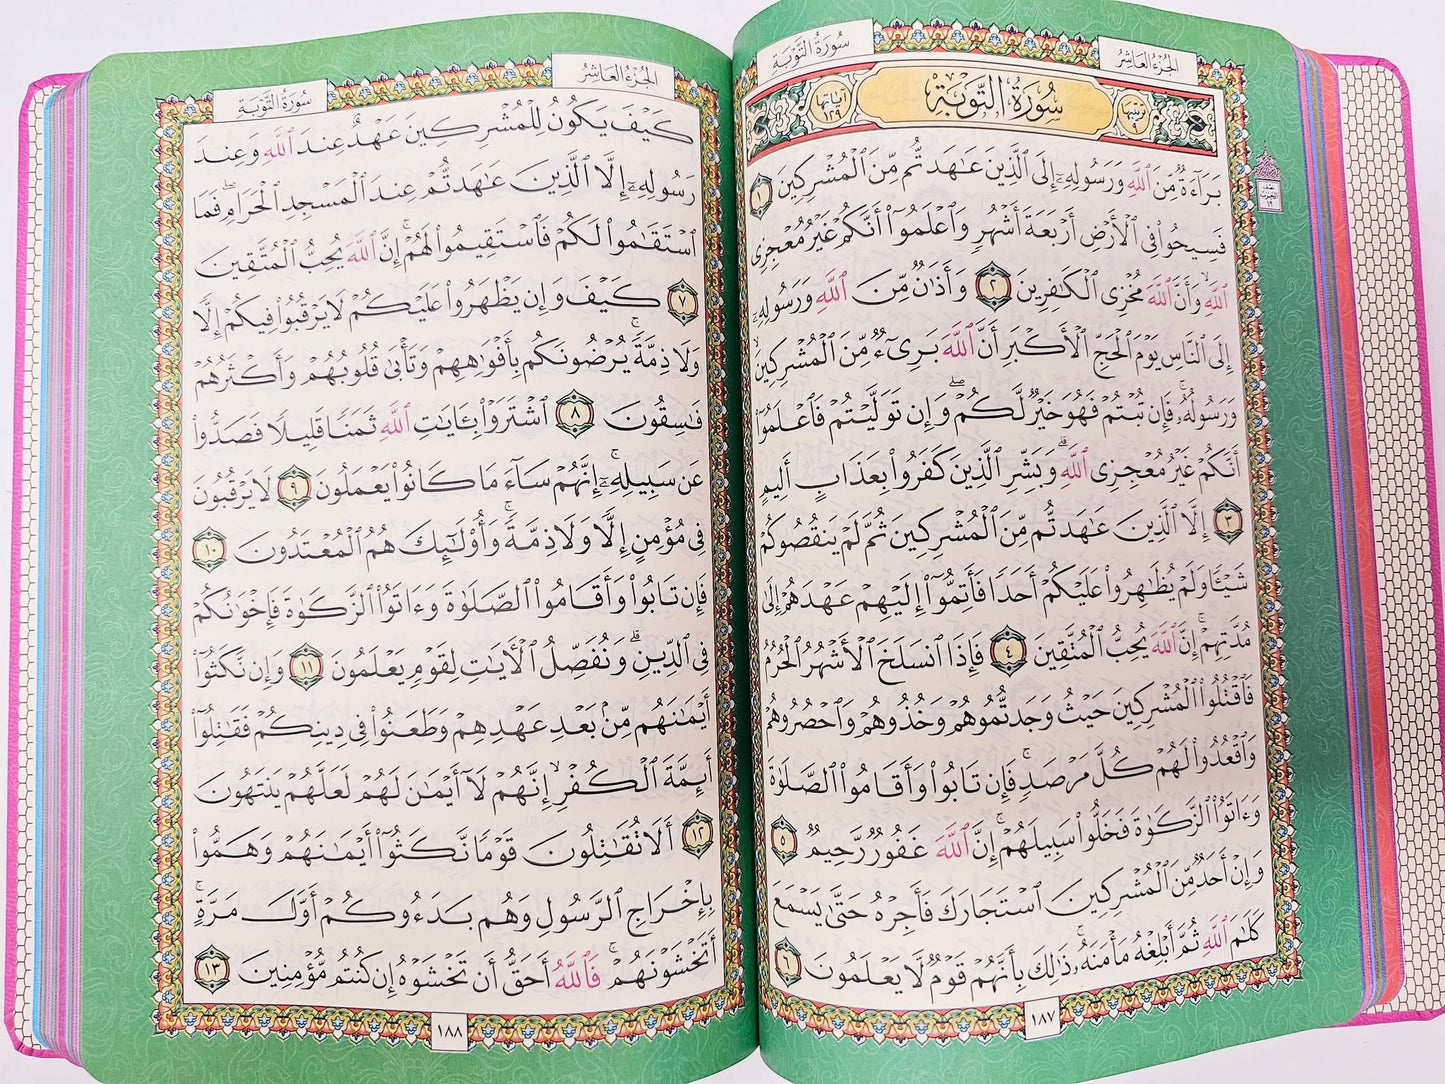 الجزء العاشر
سورة التوبة
ترتيبها ٩
سُورَةُ التَّوْبَةِ
آياتها ١٢٩
بَرَآءَةٌ مِّنَ ٱللَّهِ وَرَسُولِهِۦٓ إِلَى ٱلَّذِينَ عَٰهَدتُّم مِّنَ ٱلْمُشْرِكِينَ ١
فَسِيحُوا۟ فِى ٱلْأَرْضِ أَرْبَعَةَ أَشْهُرٍ وَٱعْلَمُوٓا۟ أَنَّكُمْ غَيْرُ مُعْجِزِى
ٱللَّهِ ۙ وَأَنَّ ٱللَّهَ مُخْزِى ٱلْكَٰفِرِينَ ٢ وَأَذَٰنٌ مِّنَ ٱللَّهِ وَرَسُولِهِۦٓ
إِلَى ٱلنَّاسِ يَوْمَ ٱلْحَجِّ ٱلْأَكْبَرِ أَنَّ ٱللَّهَ بَرِىٓءٌ مِّنَ ٱلْمُشْرِكِينَ ۙ
وَرَسُولُهُۥ ۚ فَإِن تُبْتُمْ فَهُوَ خَيْرٌ لَّكُمْ ۖ وَإِن تَوَلَّيْتُمْ فَٱعْلَمُوٓا۟
أَنَّكُمْ غَيْرُ مُعْجِزِى ٱللَّهِ ۗ وَبَشِّرِ ٱلَّذِينَ كَفَرُوا۟ بِعَذَابٍ أَلِيمٍ
٣ إِلَّا ٱلَّذِينَ عَٰهَدتُّم مِّنَ ٱلْمُشْرِكِينَ ثُمَّ لَمْ يَنقُصُوكُمْ
شَيْـًٔا وَلَمْ يُظَٰهِرُوا۟ عَلَيْكُمْ أَحَدًا فَأَتِمُّوٓا۟ إِلَيْهِمْ عَهْدَهُمْ إِلَىٰ
مُدَّتِهِمْ ۚ إِنَّ ٱللَّهَ يُحِبُّ ٱلْمُتَّقِينَ ٤ فَإِذَا ٱنسَلَخَ ٱلْأَشْهُرُ ٱلْحُرُمُ
فَٱقْتُلُوا۟ ٱلْمُشْرِكِينَ حَيْثُ وَجَدتُّمُوهُمْ وَخُذُوهُمْ وَٱحْصُرُوهُمْ
وَٱقْعُدُوا۟ لَهُمْ كُلَّ مَرْصَدٍ ۚ فَإِن تَابُوا۟ وَأَقَامُوا۟ ٱلصَّلَوٰةَ
وَءَاتَوُا۟ ٱلزَّكَوٰةَ فَخَلُّوا۟ سَبِيلَهُمْ ۚ إِنَّ ٱللَّهَ غَفُورٌ رَّحِيمٌ ٥
وَإِنْ أَحَدٌ مِّنَ ٱلْمُشْرِكِينَ ٱسْتَجَارَكَ فَأَجِرْهُ حَتَّىٰ يَسْمَعَ
كَلَٰمَ ٱللَّهِ ثُمَّ أَبْلِغْهُ مَأْمَنَهُۥ ۚ ذَٰلِكَ بِأَنَّهُمْ قَوْمٌ لَّا يَعْلَمُونَ ٦
١٨٧
الجزء العاشر
سورة التوبة
كَيْفَ يَكُونُ لِلْمُشْرِكِينَ عَهْدٌ عِندَ ٱللَّهِ وَعِندَ
رَسُولِهِۦٓ إِلَّا ٱلَّذِينَ عَٰهَدتُّمْ عِندَ ٱلْمَسْجِدِ ٱلْحَرَامِ ۖ فَمَا
ٱسْتَقَٰمُوا۟ لَكُمْ فَٱسْتَقِيمُوا۟ لَهُمْ ۚ إِنَّ ٱللَّهَ يُحِبُّ ٱلْمُتَّقِينَ
٧ كَيْفَ وَإِن يَظْهَرُوا۟ عَلَيْكُمْ لَا يَرْقُبُوا۟ فِيكُمْ إِلًّا
وَلَا ذِمَّةً ۚ يُرْضُونَكُم بِأَفْوَٰهِهِمْ وَتَأْبَىٰ قُلُوبُهُمْ وَأَكْثَرُهُمْ
فَٰسِقُونَ ٨ ٱشْتَرَوْا۟ بِـَٔايَٰتِ ٱللَّهِ ثَمَنًا قَلِيلًا فَصَدُّوا۟
عَن سَبِيلِهِۦٓ ۚ إِنَّهُمْ سَآءَ مَا كَانُوا۟ يَعْمَلُونَ ٩ لَا يَرْقُبُونَ
فِى مُؤْمِنٍ إِلًّا وَلَا ذِمَّةً ۚ وَأُو۟لَٰٓئِكَ هُمُ ٱلْمُعْتَدُونَ ١٠
فَإِن تَابُوا۟ وَأَقَامُوا۟ ٱلصَّلَوٰةَ وَءَاتَوُا۟ ٱلزَّكَوٰةَ فَإِخْوَٰنُكُمْ
فِى ٱلدِّينِ ۗ وَنُفَصِّلُ ٱلْـَٔايَٰتِ لِقَوْمٍ يَعْلَمُونَ ١١ وَإِن نَّكَثُوٓا۟
أَيْمَٰنَهُم مِّنۢ بَعْدِ عَهْدِهِمْ وَطَعَنُوا۟ فِى دِينِكُمْ فَقَٰتِلُوٓا۟
أَئِمَّةَ ٱلْكُفْرِ ۙ إِنَّهُمْ لَآ أَيْمَٰنَ لَهُمْ لَعَلَّهُمْ يَنتَهُونَ
١٢ أَلَا تُقَٰتِلُونَ قَوْمًا نَّكَثُوٓا۟ أَيْمَٰنَهُمْ وَهَمُّوا۟
بِإِخْرَاجِ ٱلرَّسُولِ وَهُم بَدَءُوكُمْ أَوَّلَ مَرَّةٍ ۚ
أَتَخْشَوْنَهُمْ ۚ فَٱللَّهُ أَحَقُّ أَن تَخْشَوْهُ إِن كُنتُم مُّؤْمِنِينَ ١٣
١٨٨